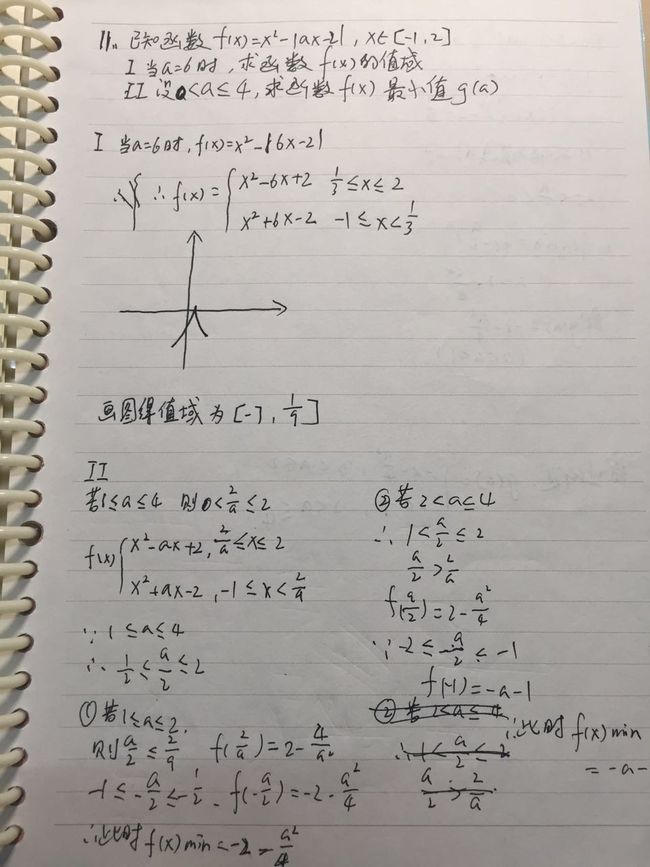 11. 已知函数 f(x)=x²-|ax-2|, x∈[-1,2]
I 当a=6时,求函数f(x)的值域
II 设0<a≤4,求函数f(x)最小值g(a)
I 当a=6时,f(x)=x²-|6x-2|
∴ f(x)= { x²-6x+2 1/3≤x≤2
x²+6x-2 -1≤x<1/3
画图得值域为[-7, 1/9]
II
若1≤a≤4 则0<2/a≤2
f(x) { x²-ax+2, 2/a≤x≤2
x²+ax-2, -1≤x<2/a
∵ 1≤a≤4
∴ 1/2≤a/2≤2
①若1≤a≤2,
则a/2≤2/a f(2/a)=2-4/a²
-1≤-a/2≤-1/2. f(-a/2)=-2-a²/4
∴此时f(x)min=-2-a²/4
②若2<a≤4
∴ 1<a/2≤2
a/2>2/a
f(a/2)=2-a²/4
∵-2≤-a/2≤-1
f(-1)=-a-1
②若2<a≤4
∴1<a/2≤2
a/2>2/a
∴此时f(x)min
=-a-